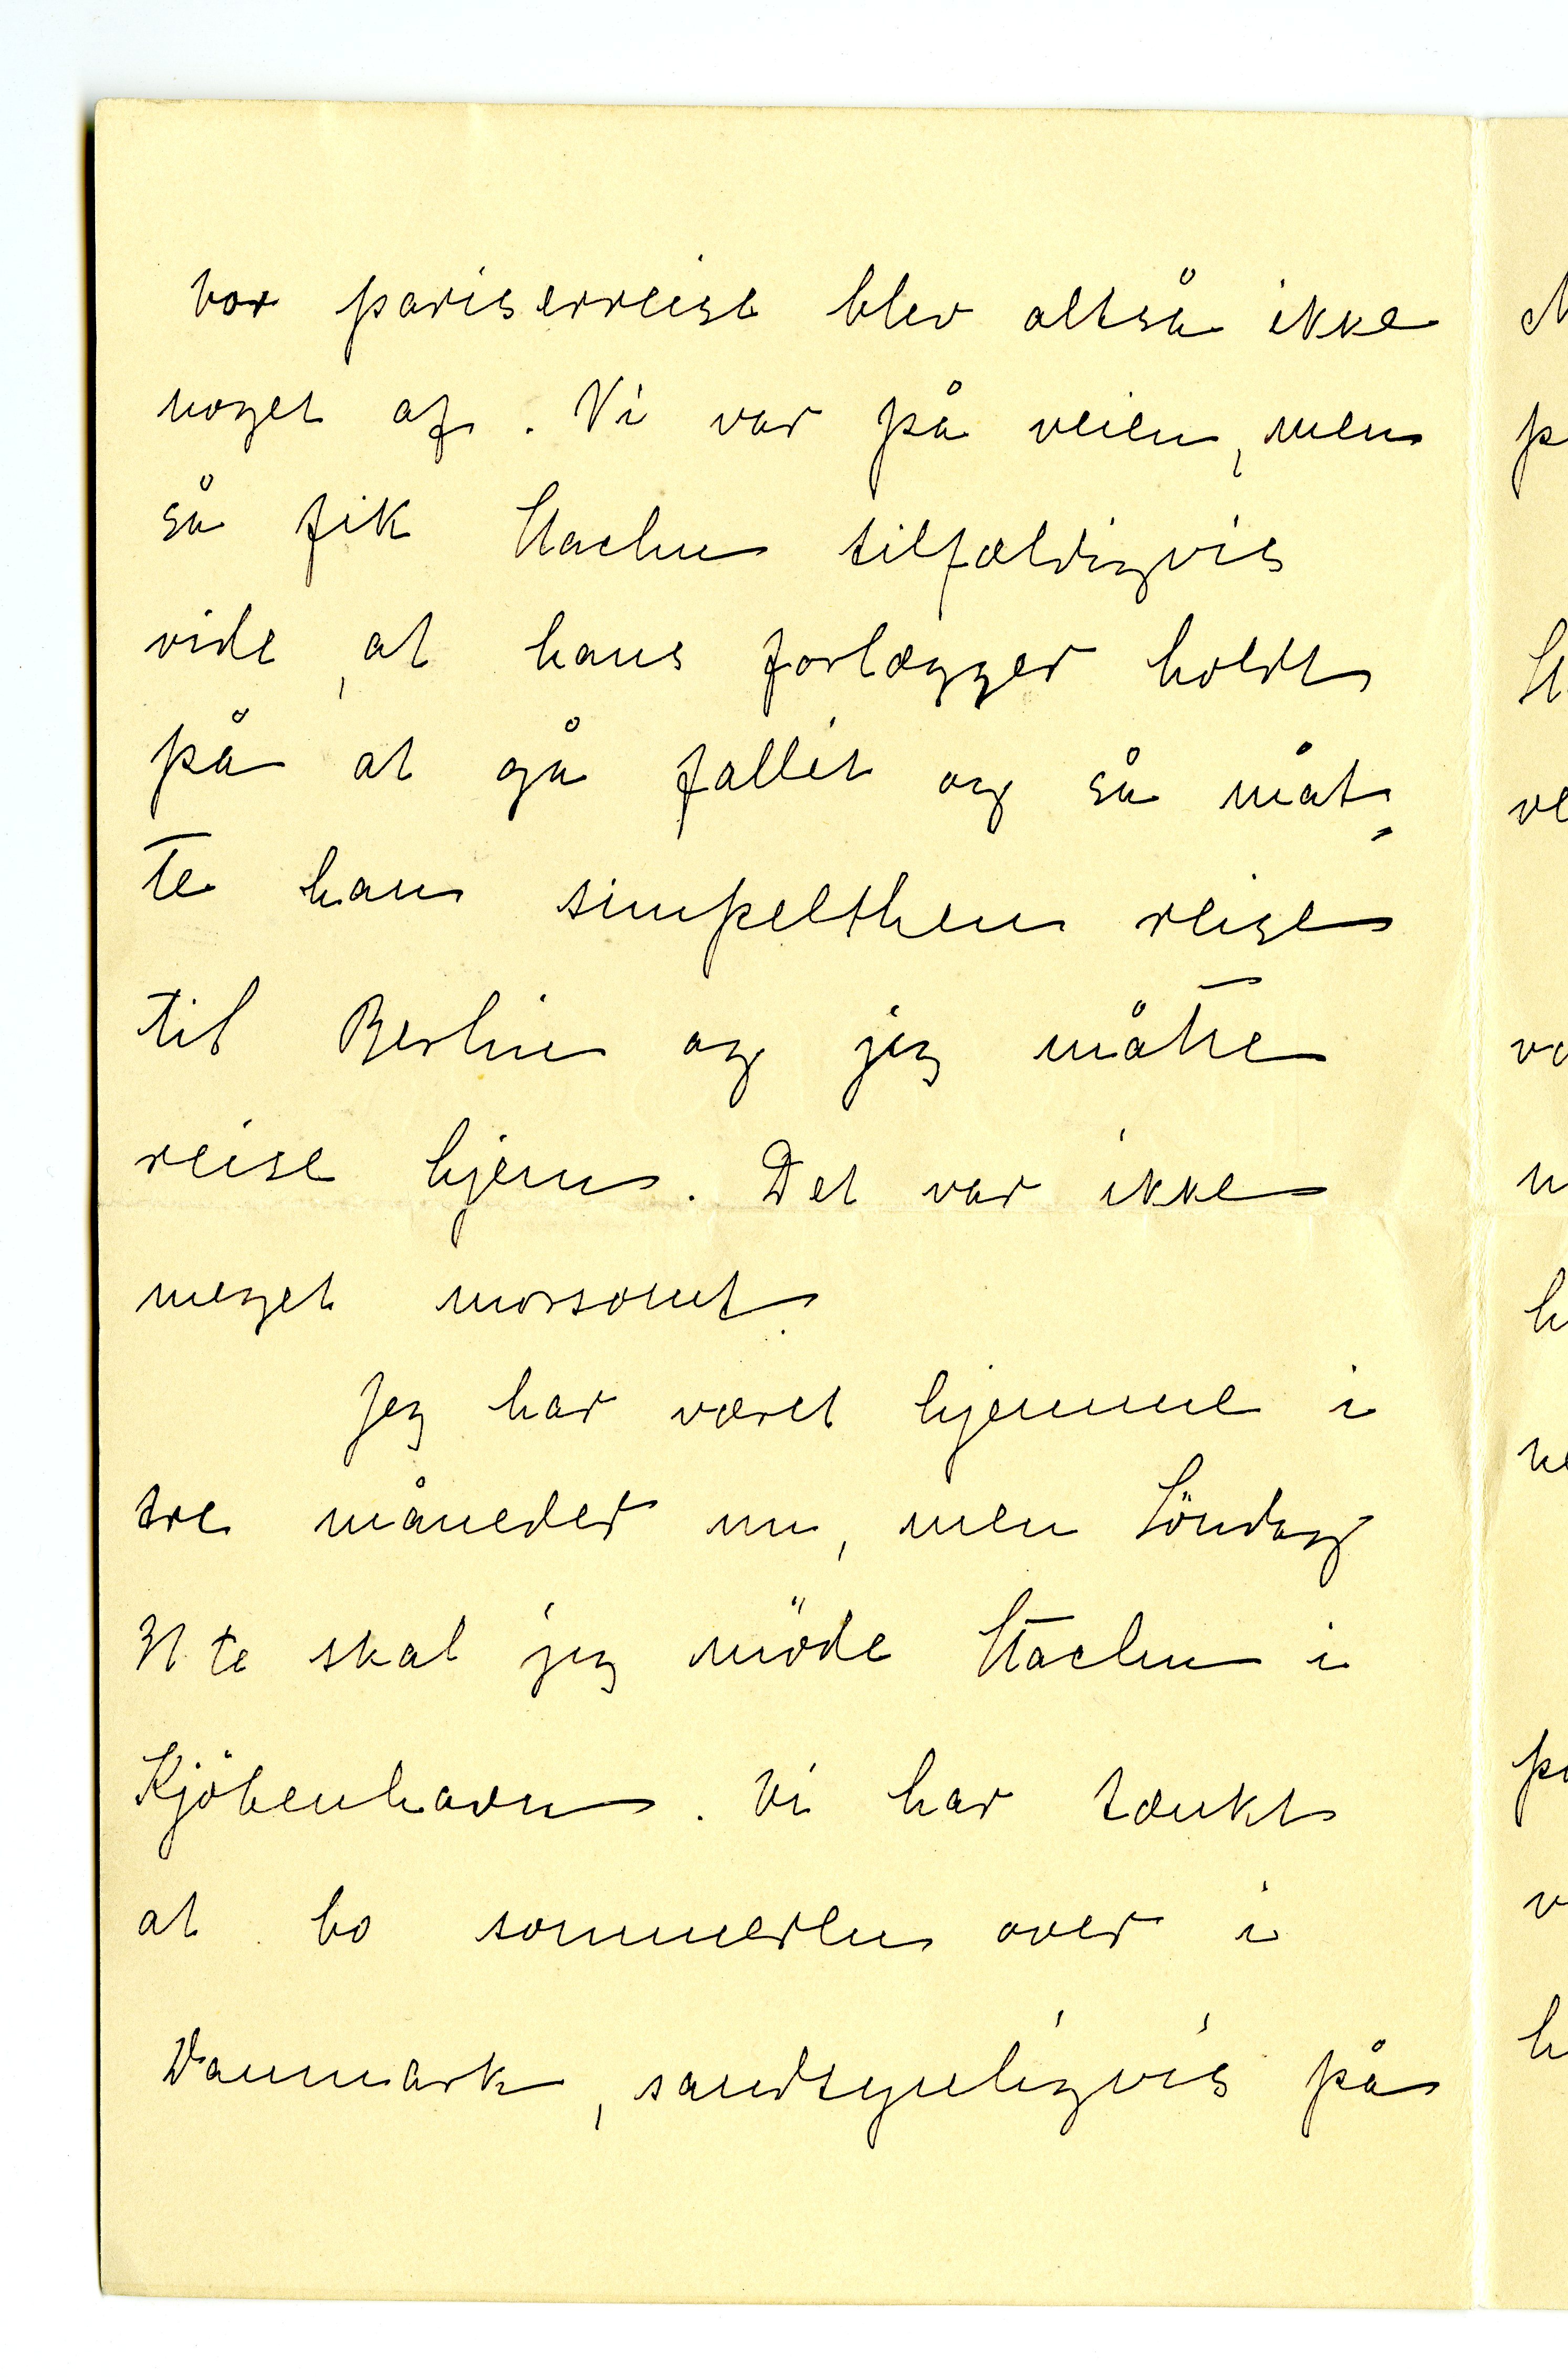 vor pariserreise blev altså ikke
noget af. Vi var på veien, men
så fik Stachu tilfældigvis
vide, at hans forlægger holdt
på at gå fallit og så måt-
te han simpelthen reise
til Berlin og jeg måtte
reise hjem. Det var ikke
meget morsomt.
Jeg har været hjemme i
tre måneder nu, men Söndag
31te skal jeg möde Stachu i
Kjöbenhavn. Vi har tænkt
at bo sommeren over i
Danmark, sandsynligvis på